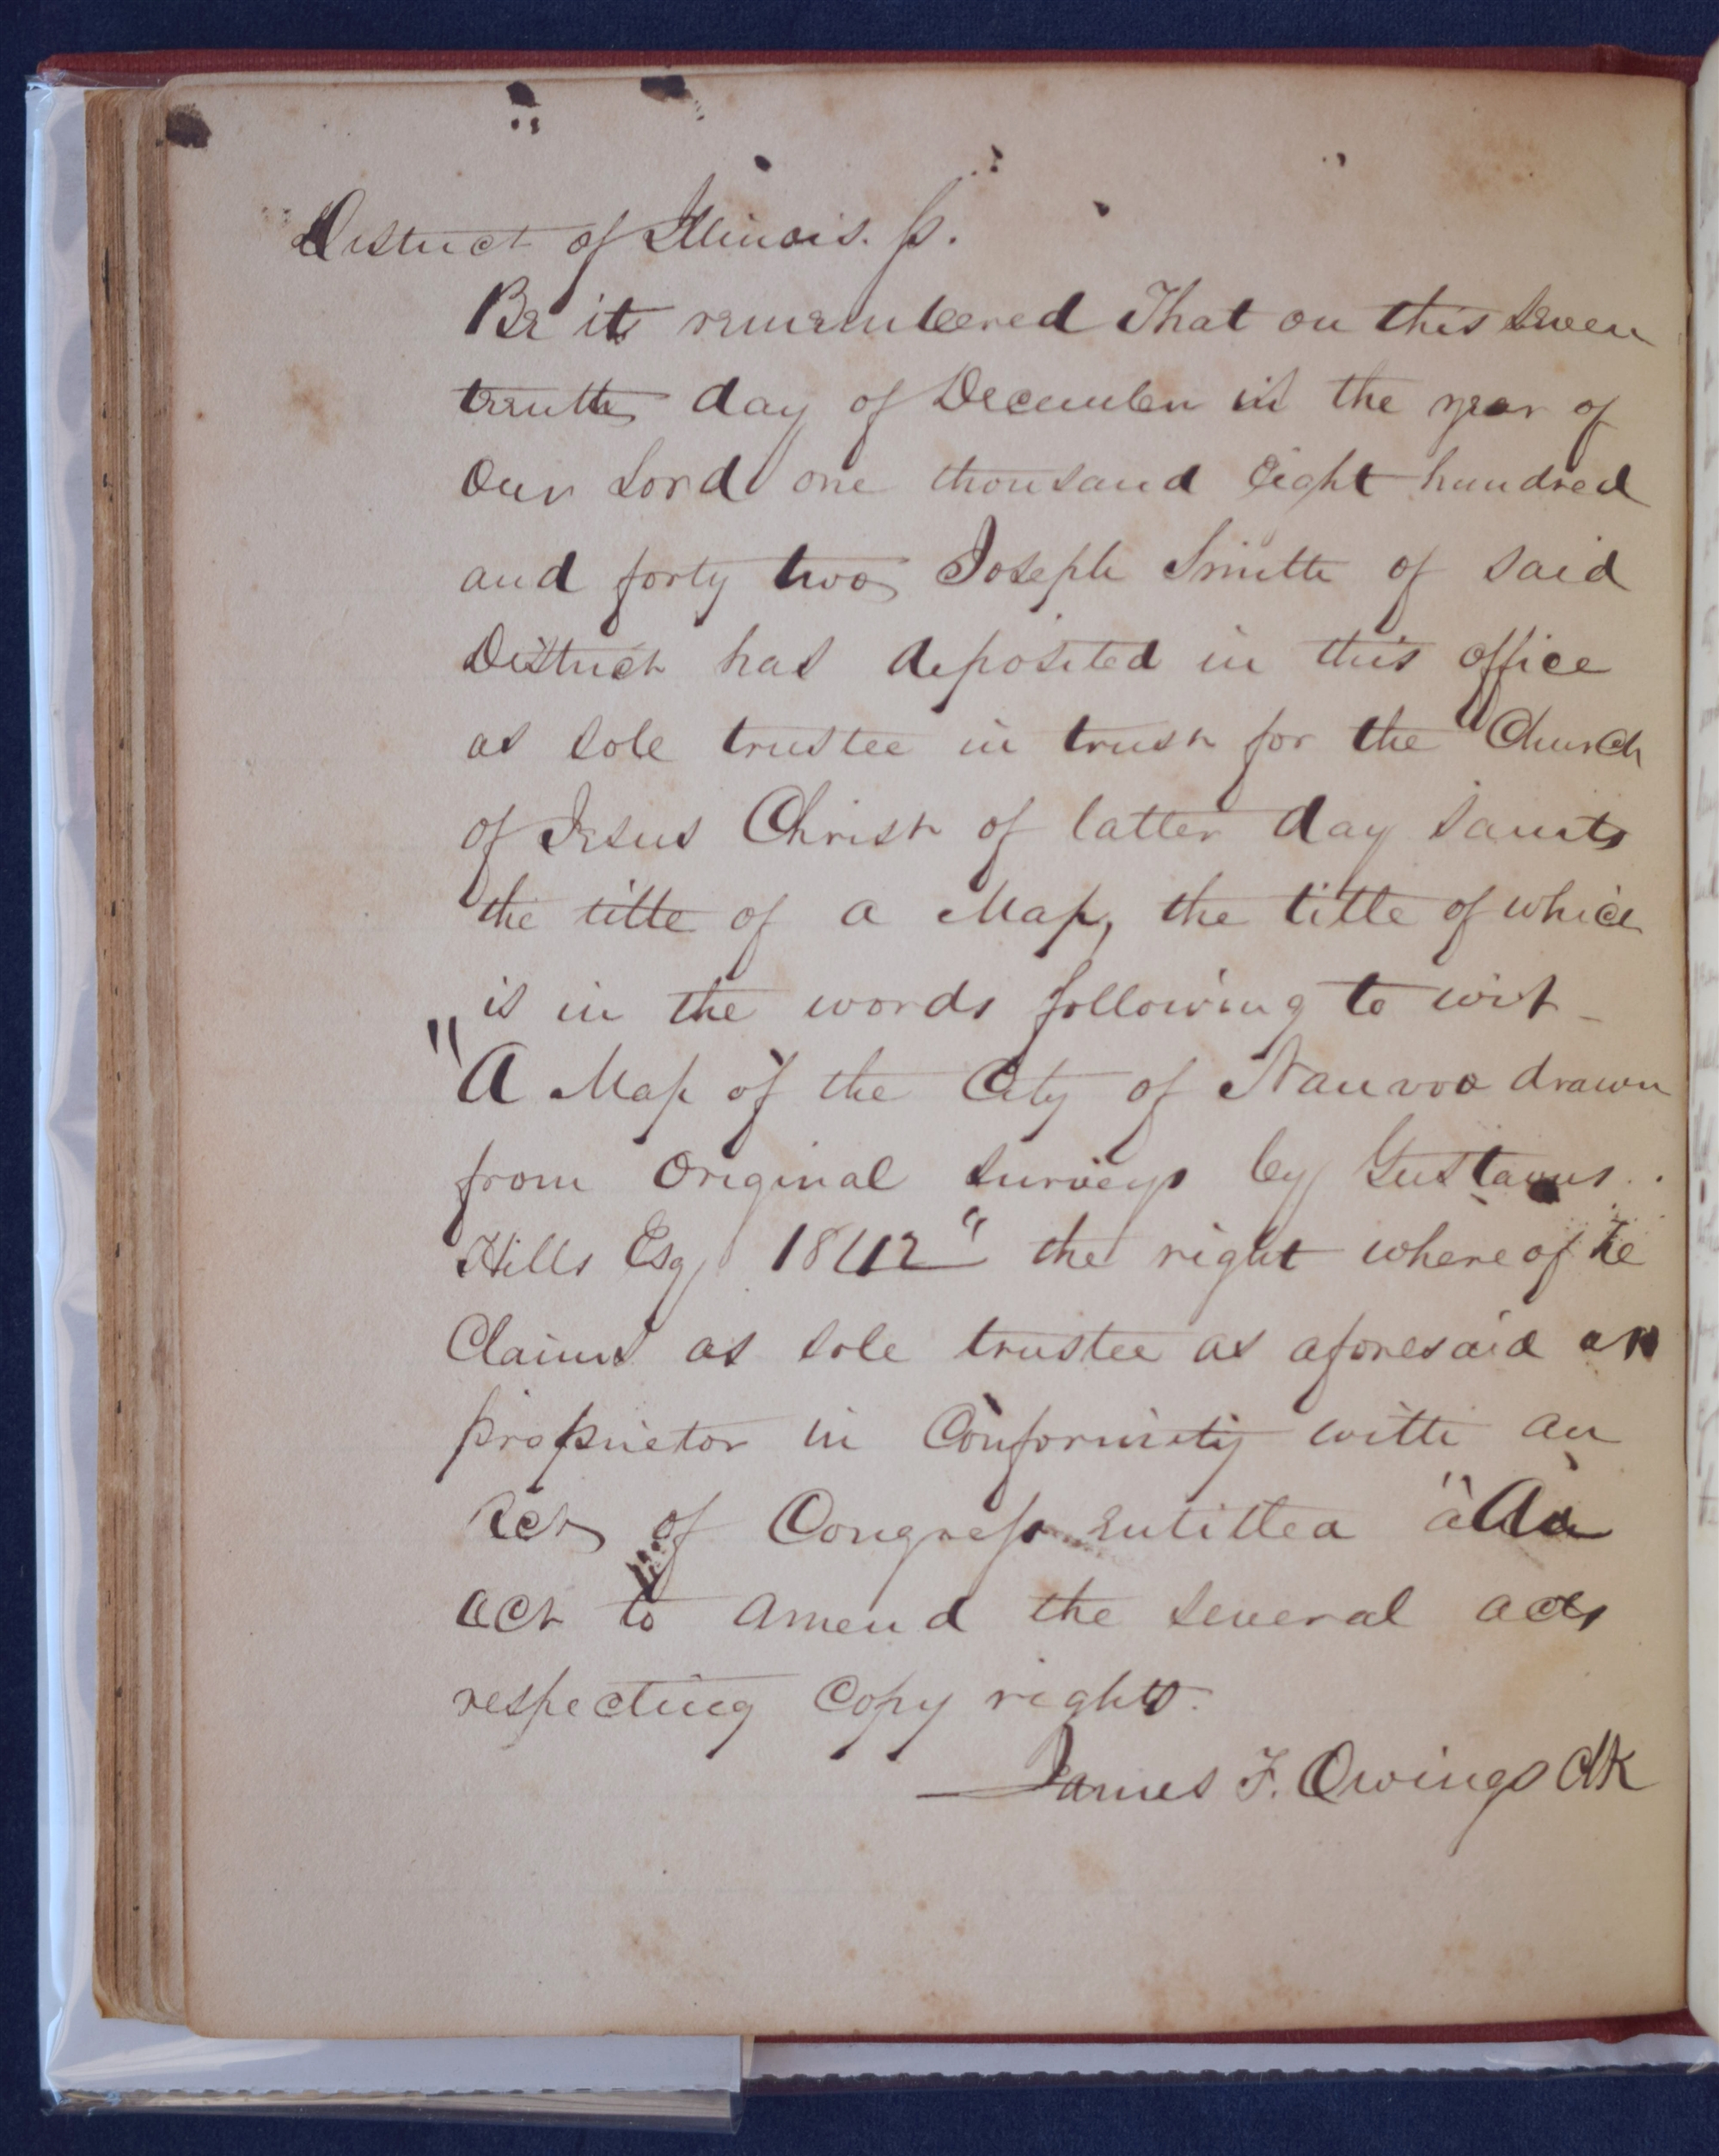 District of Illinois. ss.
Be it remembered That on this Seven
teenth day of December in the year of
Our Lord one thousand Eight hundred
and forty two Joseph Smith of said
District has deposited in this office
as sole trustee in trust for the Church
of Jesus Christ of latter day saints
the title of a Map, the title of which
is in the words following to wit_
"A Map of the City of Nauvoo drawn
from Original surveys by Gustavus
Hills Esq 1842" the right whereof he
Claims as sole trustee as aforesaid as
proprietor in Conformity with an
Act of Congress entitled "An
act to amend the several acts
respecting Copy rights.
James F. Owings Clk